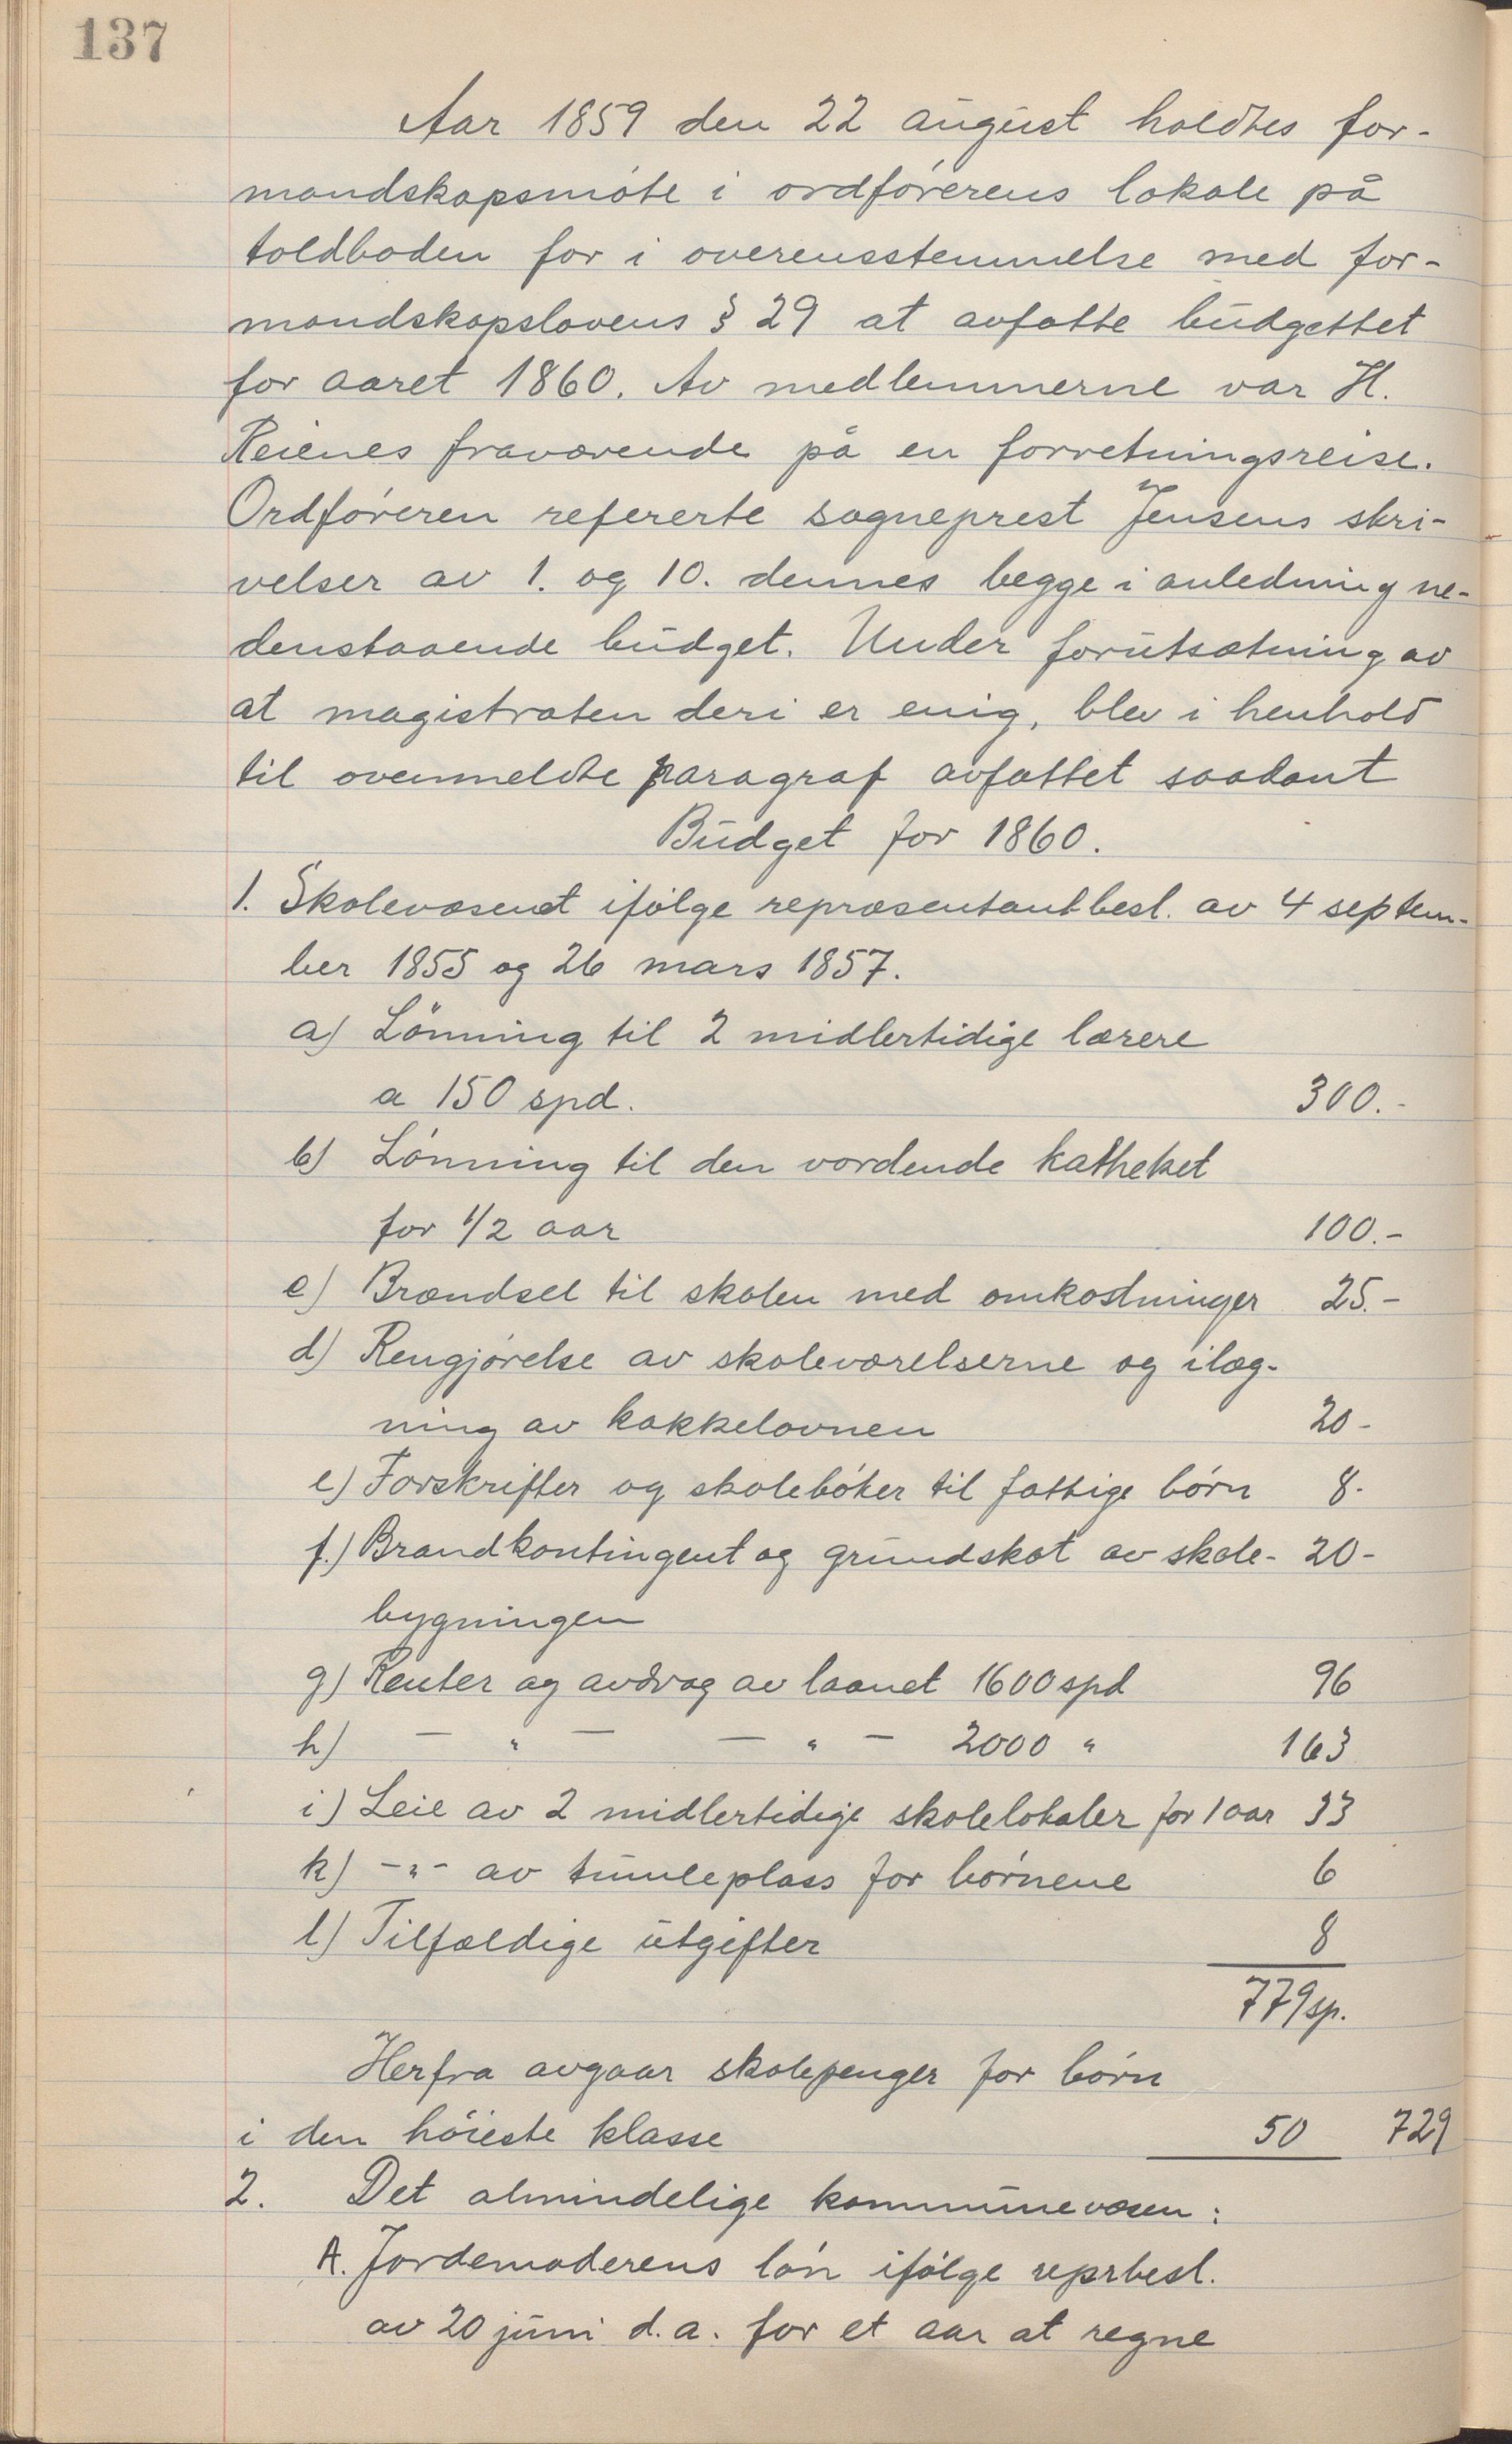 137
Aar 1859 den 22 august holdtes for-
mandskapsmöte i ordförerens lokale på
toldboden for i overensstemmelse med for-
mandskapslovens § 29 at avfatte budgettet
for aaret 1860. Av medlemmerne var H.
Reienes fraværende på en forretningsreise.
Ordföreren refererte sogneprest Jensens skri-
velser av 1. og 10. dennes begge i anledning ne-
denstaaende budget. Under forutsætning av
at magistraten deri er enig, blev i henhold
til ovenmeldte paragraf avfattet saadant
Budget for 1860.
1. Skolevæsenet ifölge repræsentantbesl. av 4 septem-
ber 1855 og 26 mars 1857.
a) Lönning til 2 midlertidige lærere
a 150 spd. 300.-
b) Lönning til den vordende katheket
for 1/2 aar 100.-
c) Brændsel til skolen med omkostninger 25.-
d) Rengjörelse av skoleværelserne og ilæg-
ning av kakkelovnen 20-
e) Forskrifter og skoleböker til fattige börn 8.
f.) Brandkontingent og grundskat av skole- 20-
bygningen
g) Renter og avdrag av laanet 1600 spd 96
h) — " — — " — 2000 " 163
i) Leie av 2 midlertidige skolelokaler for 1 aar 33
k) -"- av tumleplass for börnene 6
l) Tilfældige utgifter 8
779 sp.
Herfra avgaar skolepenger for börn
i den höieste klasse 50 729
2. Det almindelige kommunevæsen:
A. Jordemoderens lön ifölge reprbesl.
av 20 juni d.a. for et aar at regne